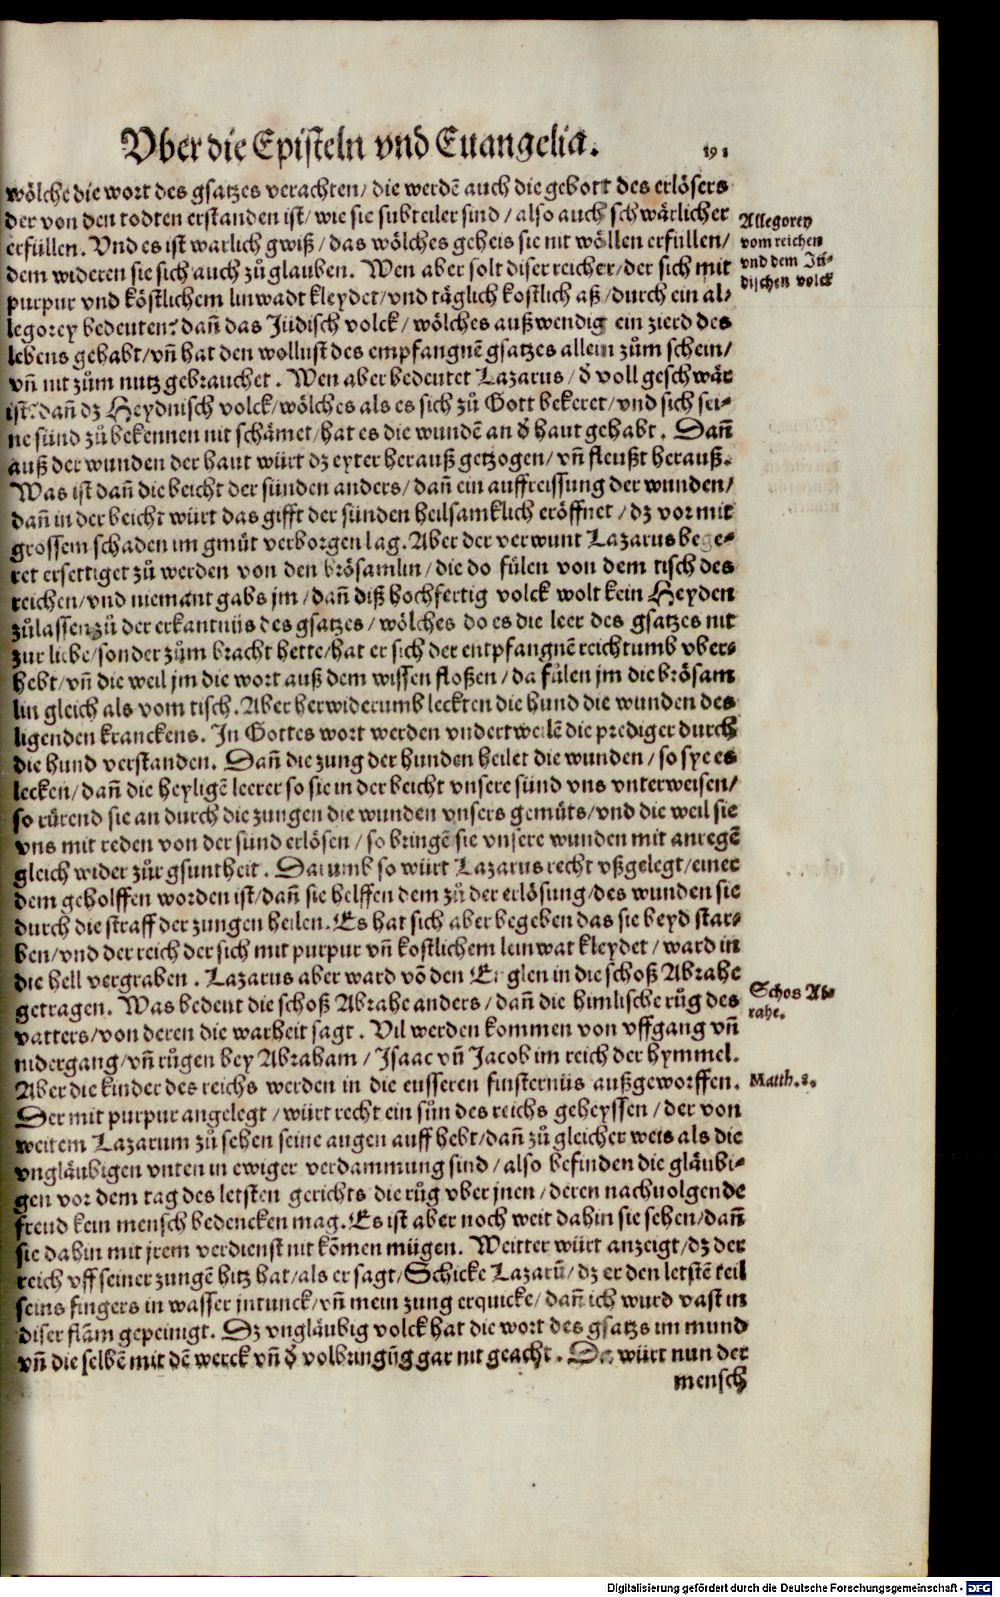 Vber die Episteln vnd Euangelia. 191
wölche die wort des gsatzes verachten/ die werdē auch die gebott des erlösers
der von den todten erstanden ist/ wie sie subteiler sind / also auch schwärlicher
erfüllen. Vnd es ist warlich gwiß/ das wölches geheis sie nit wöllen erfüllen/
dem wideren sie sich auch zů glauben. Wen aber solt diser reicher/ der sich mit
purpur vnd köstlichem linwadt kleydet/ vnd täglich kostlich aß/ durch ein al⸗
legorey bedeuten? dañ das Jüdisch volck/ wölches außwendig ein zierd des
lebens gehabt/ vñ hat den wollust des empfangnē gsatzes allein zům schein/
vñ nit zům nutz gebrauchet. Wen aber bedeutet Lazarus/ d̄ voll geschwär
ist? dañ dz Heydnisch volck/ wölches als es sich zů Gott bekeret/ vnd sich sei⸗
ne sünd zů bekennen nit schämet/ hat es die wundē an d̄ haut gehabt. Dañ
auß der wunden der haut würt dz eyter herauß getzogen/ vñ fleußt herauß.
Was ist dañ die beicht der sünden anders/ dañ ein auffreissung der wunden/
dañ in der beicht würt das gifft der sünden heilsamklich eröffnet / dz vor mit
grossem schaden im gmüt verborgen lag. Aber der verwunt Lazarus bege⸗
ret ersettiget zů werden von den brösamlin/ die do fülen von dem tisch des
reichen/ vnd niemant gabs jm/ dañ diß hochfertig volck wolt kein Heyden
zůlassen zů der erkantnüs des gsatzes/ wölches do es die leer des gsatzes nit
zur liebe/ sonder zům bracht hette/ hat er sich der entpfangnē reichtumb vber⸗
hebt/ vñ die weil jm die wort auß dem wissen floßen/ da fülen jm die brösam
lin gleich als vom tisch. Aber herwiderumb leckten die hund die wunden des
ligenden kranckens. In Gottes wort werden vndertweilē die prediger durch
die hund verstanden. Dañ die zung der hunden heilet die wunden/ so sye es
lecken/ dañ die heyligē leerer so sie in der beicht vnsere sünd vns vnterweisen/
so rürend sie an durch die zungen die wunden vnsers gemüts/ vnd die weil sie
vns mit reden von der sünd erlösen/ so bringē sie vnsere wunden mit anregē
gleich wider zůr gsuntheit. Darumb so würt Lazarus recht vßgelegt/ einer
dem geholffen worden ist/ dañ sie helffen dem zů der erlösung/ des wunden sie
durch die straff der zungen heilen. Es hat sich aber begeben das sie beyd star⸗
ben/ vnd der reich der sich mit purpur vñ kostlichem leinwat kleydet/ ward in
die hell vergraben. Lazarus aber ward vō den Englen in die schoß Abrahe
getragen. Was bedeut die schoß Abrahe anders/ dañ die himlische růg des
vatters/ von deren die warheit sagt. Vil werden kommen von vffgang vñ
nidergang/ vñ růgen bey Abraham/ Isaac vñ Jacob im reich der hymmel.
Aber die kinder des reichs werden in die eusseren finsternüs außgeworffen.
Der mit purpur angelegt/ würt recht ein sůn des reichs geheyssen/ der von
weitem Lazarum zů sehen seine augen auff hebt/ dañ zů gleicher weis als die
vngläubigen vnten in ewiger verdammung sind/ also befinden die gläubi⸗
gen vor dem tag des letsten gerichts die růg vber jnen/ deren nachuolgende
freud kein mensch bedencken mag. Es ist aber noch weit dahin sie sehen/ dañ
sie dahin mit jrem verdienst nit kōmen mügen. Weitter würt anzeigt/ dz der
reich vff seiner zungē hitz hat/ als er sagt/ Schicke Lazarū/ dz er den letstē teil
seins fingers in wasser intunck/ vñ mein zung erquicke/ dañ ich wurd vast in
diser flām gepeinigt. Dz vngläubig volck hat die wort des gsatzs im mund
vñ die selbē mit dē werck vñ d̄ volbringūg gar nit geacht. Da würt nun der
mensch
Allegorey
vom reichen
vnd dem Jü⸗
dischen volck
Schos Ab⸗
rahe.
Matth. 8.
Digitalisierung gefördert durch die Deutsche Forschungsgemeinschaft - DFG